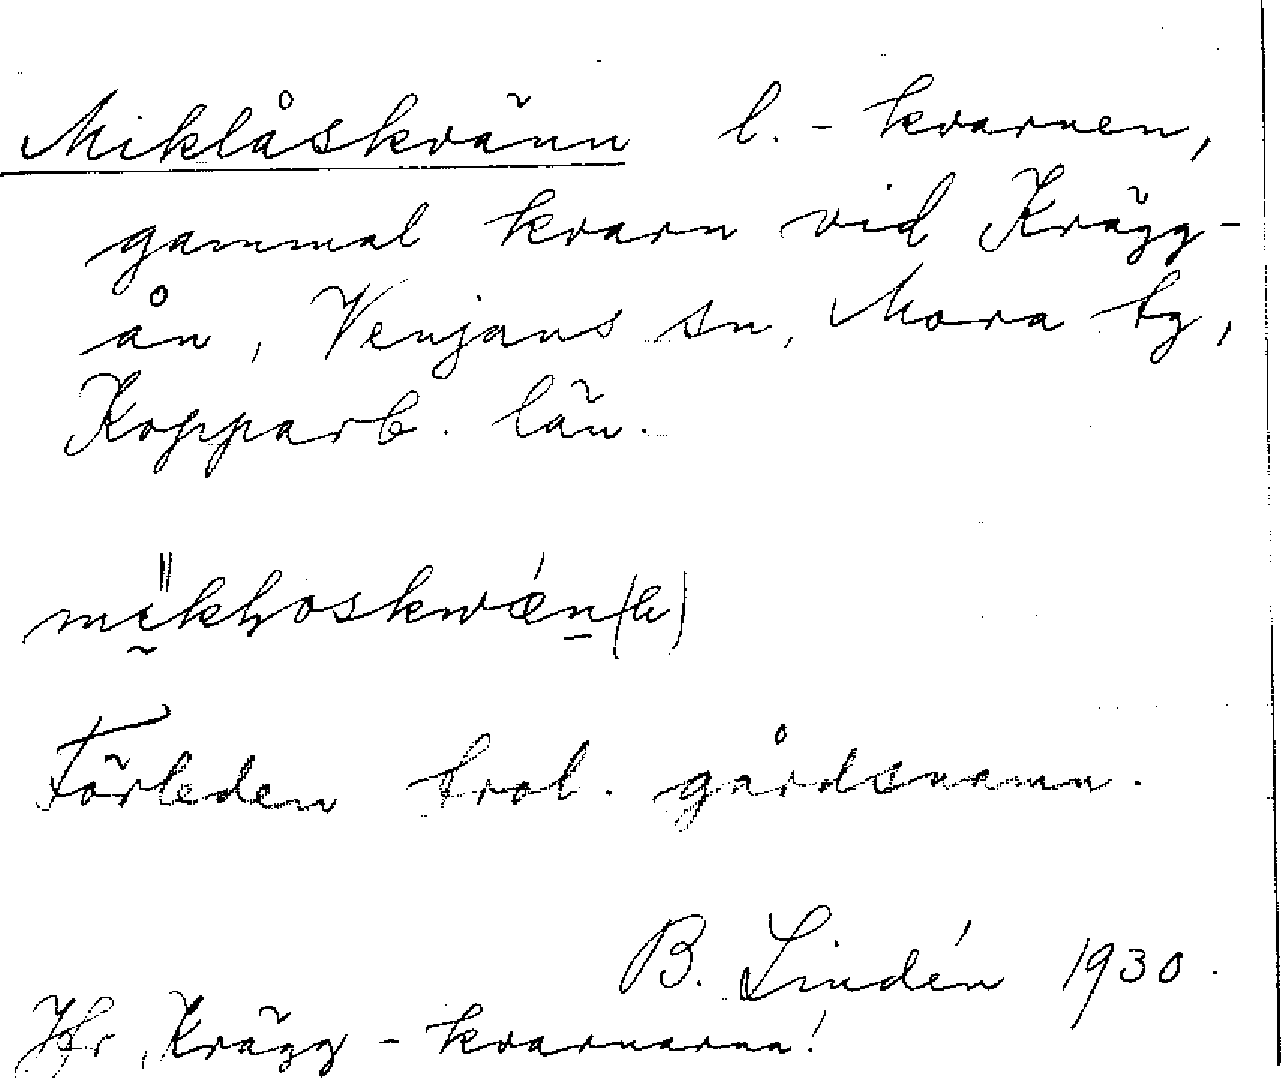 Miklåskvänn l. - kvarnen,
gammal kvarn vid Krägg-
ån, Venjans sn, Mora tg,
Kopparb. län.
Förleden trol. gårdsnamn.
B. Lindén 1930.
Jfr Krägg - kvarnarna!